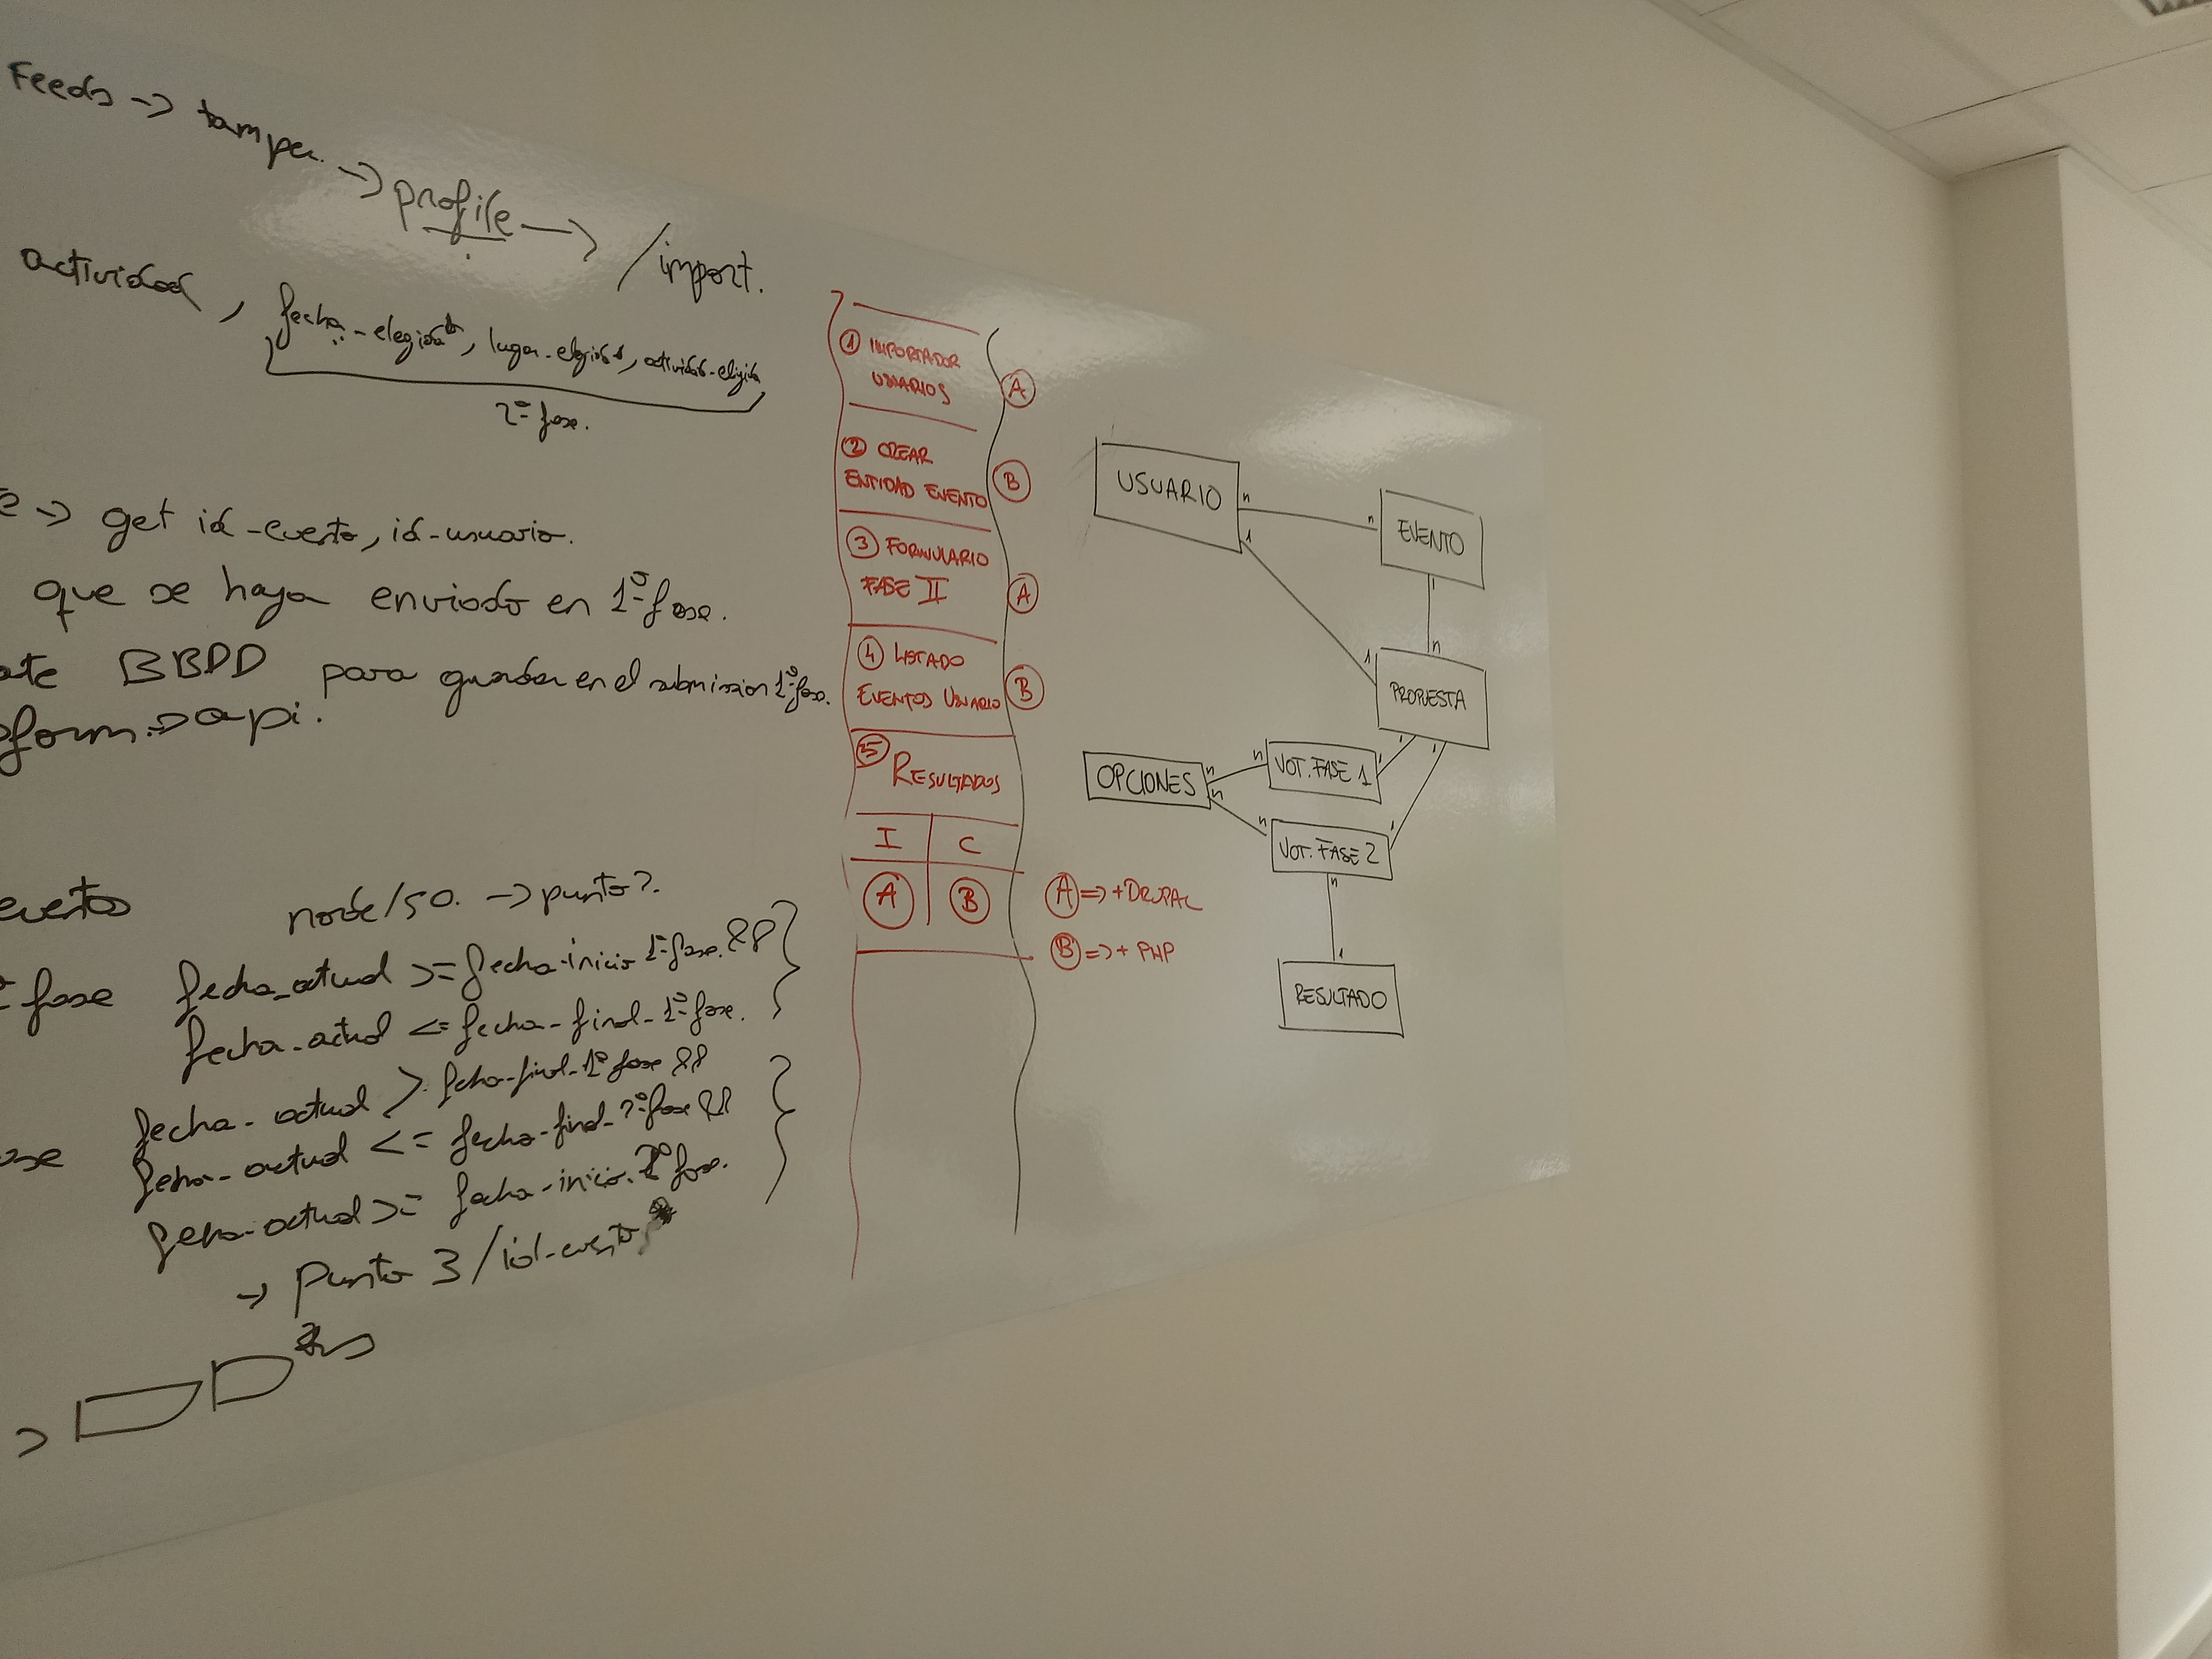 Feeds -> tamper -> profile -> /import.
actividad, fecha-elegida, lugar-elegido, actividad-elegida
2ª fase.
-> get id-evento, id-usuario.
que se haya enviado en 1ª fase.
BBDD para guardar en el submission 1ª fase.
form -> api.
eventos node/50. -> punto?.
fase fecha_actual >= fecha-inicio 1ª fase. &&
fecha-actual <= fecha-final-1ª fase.
fecha-actual > fecha-final-1ª fase &&
fecha-actual <= fecha-final-2ª fase &&
fecha-actual >= fecha-inicio-2ª fase.
-> Punto 3 / id-evento
1 IMPORTADOR
USUARIOS
A
2 CREAR
ENTIDAD EVENTO
B
3 FORMULARIO
FASE II
A
4 LISTADO
EVENTOS USUARIO
B
5 RESULTADOS
I C
A B
A => + DRUPAL
B => + PHP
USUARIO
n n
1
EVENTO
1
n
1
PROPUESTA
1 1
OPCIONES
n n
n n
VOT. FASE 1
1
VOT. FASE 2
1
n
1
RESULTADO